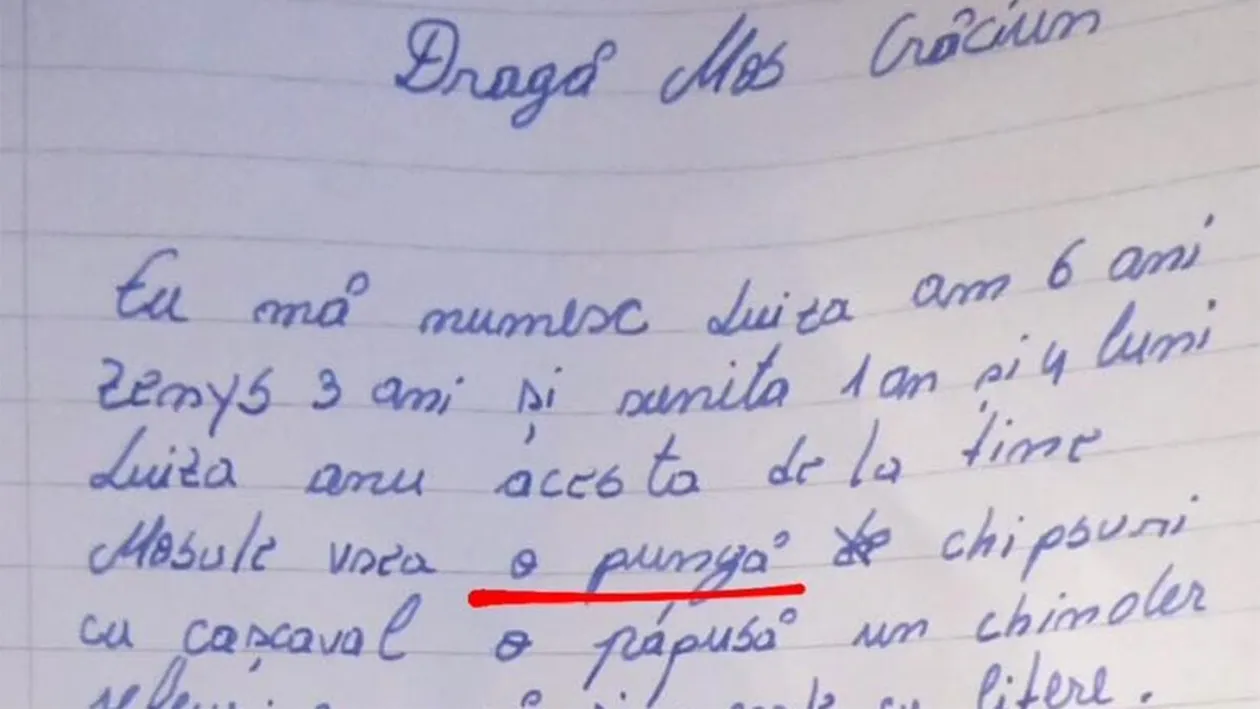 Dragă Mos Crăciun
Eu mă numesc Luiza am 6 ani
zenys 3 ani și sunita 1 an și 4 luni
Luiza anu acesta de la tine
Mosule vrea o pungă de chipsuri
cu cașcaval o păpusă un chinder
litere.